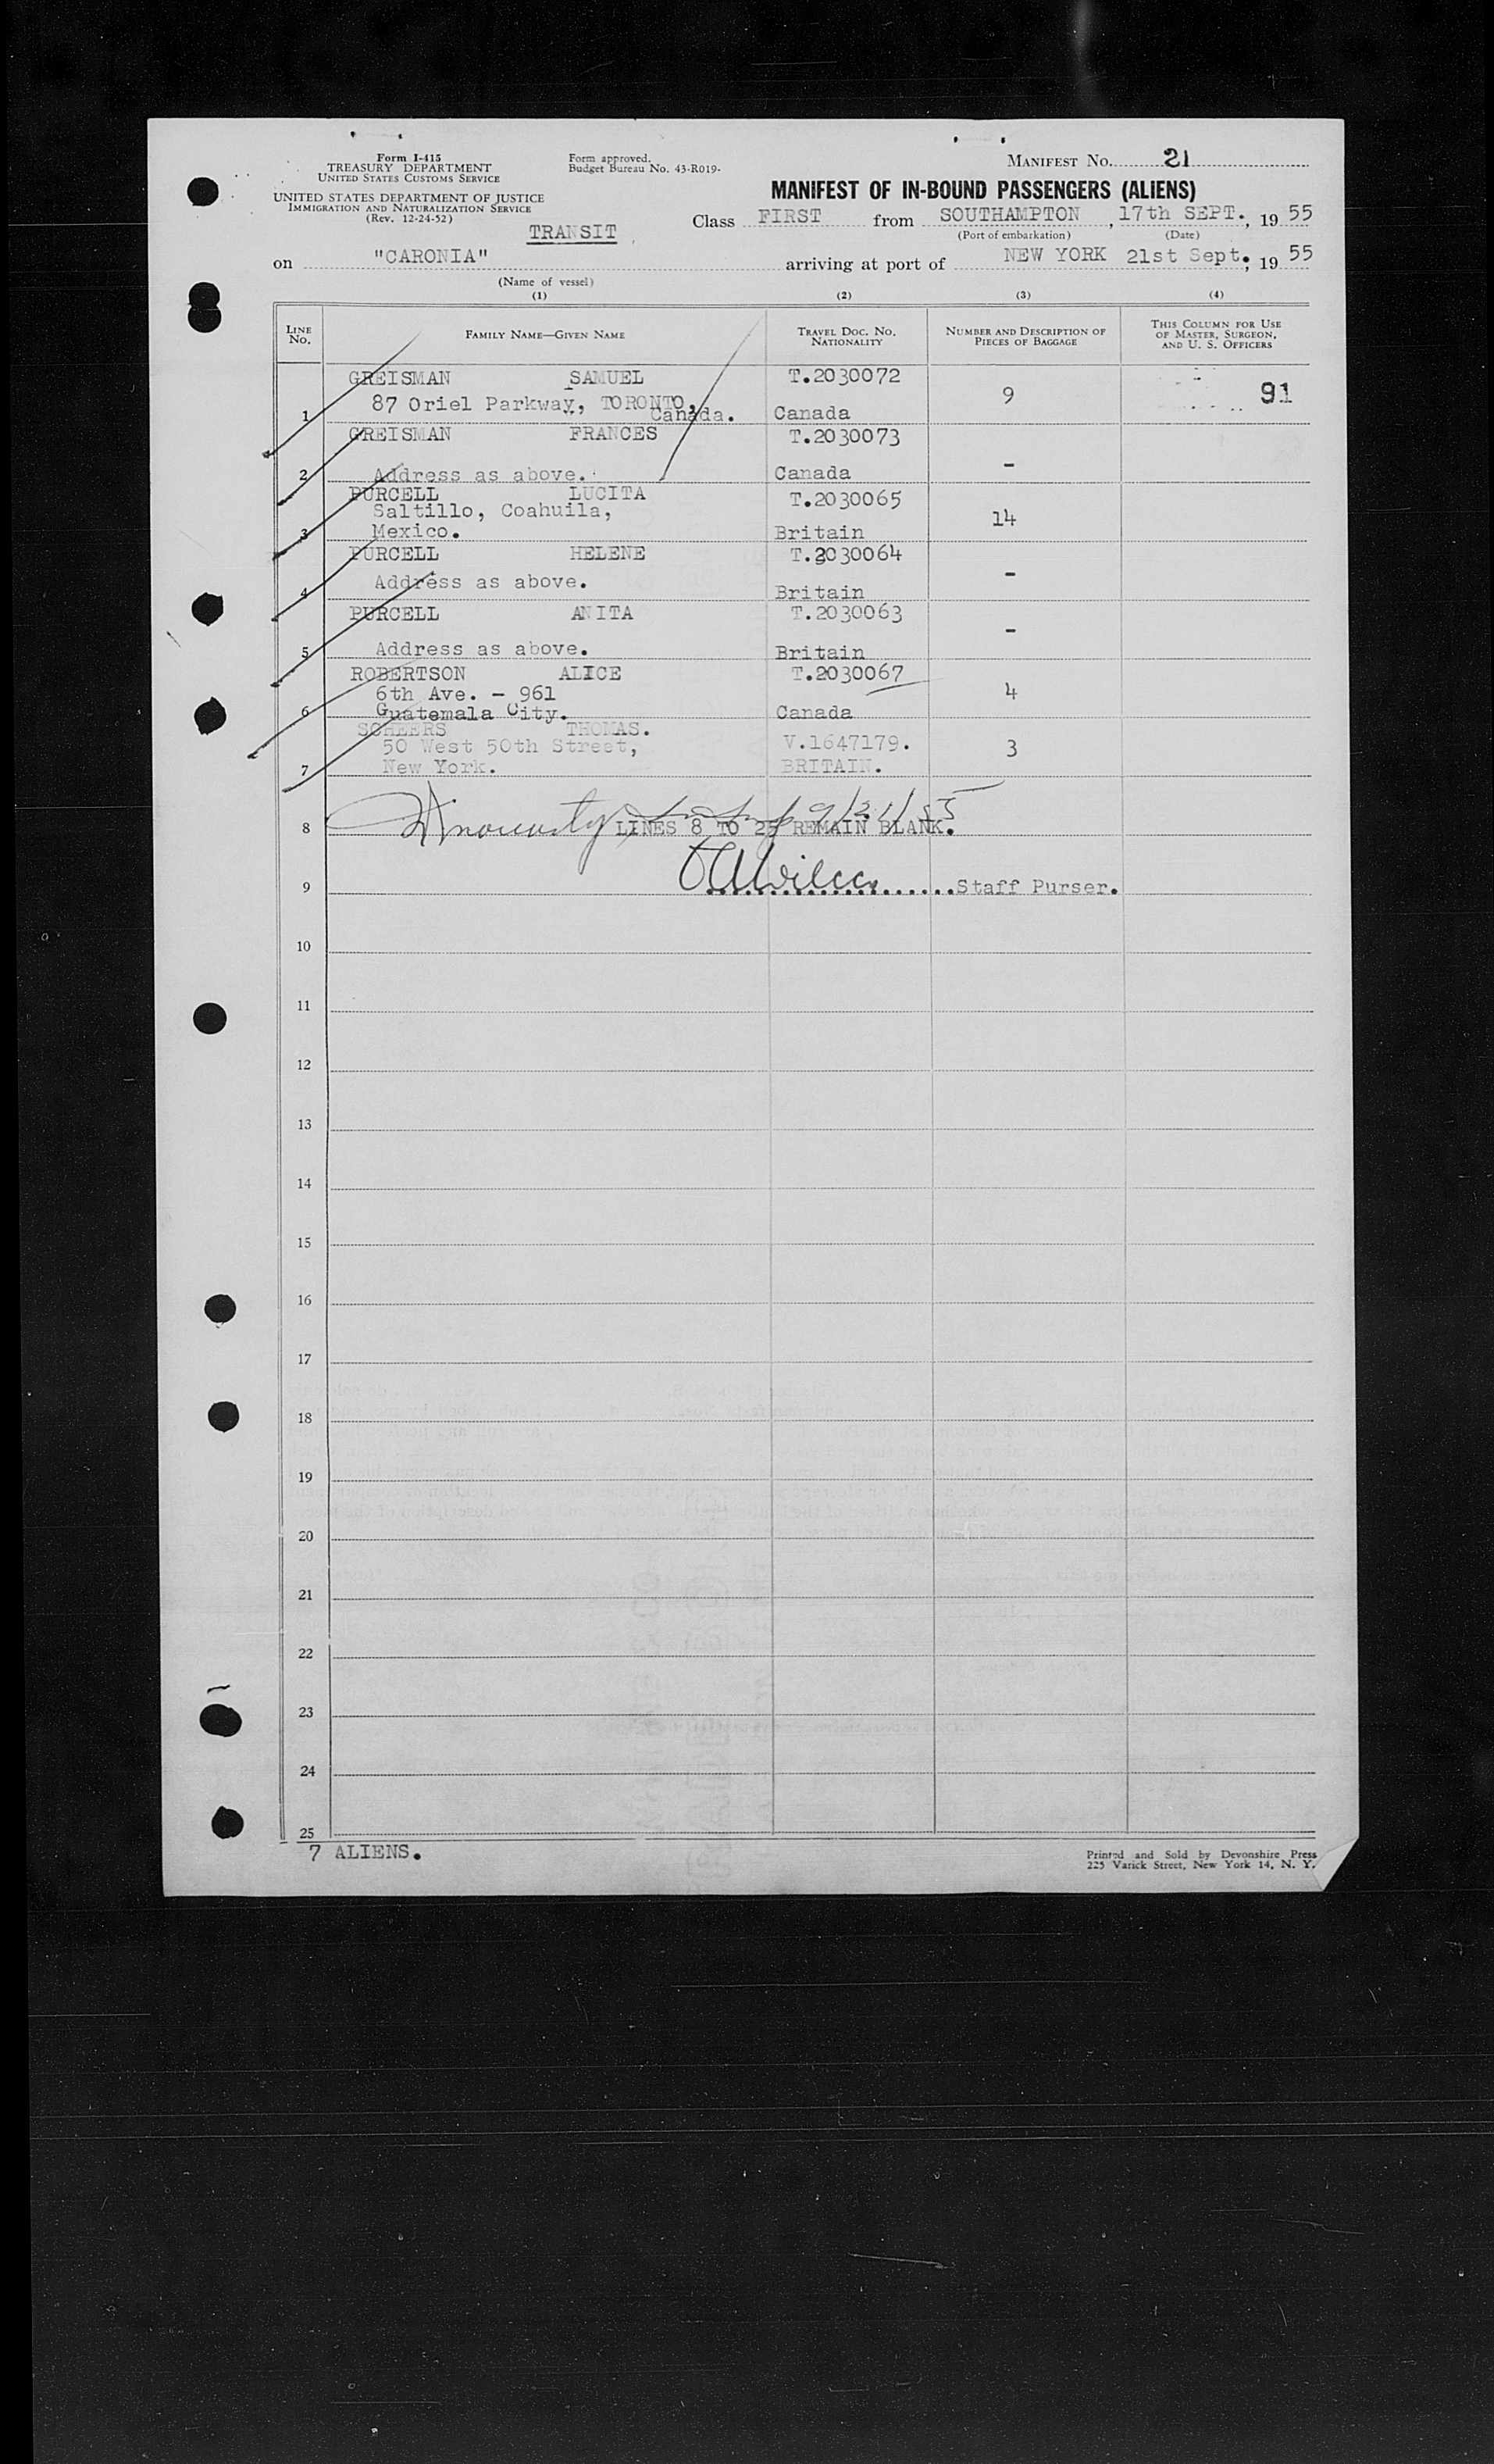 Form I-415
TREASURY DEPARTMENT
UNITED STATES CUSTOMS SERVICE
UNITED STATES DEPARTMENT OF JUSTICE
IMMIGRATION AND NATURALIZATION SERVICE
(Rev. 12-24-52)
Form approved.
Budget Bureau No. 43-R019-
MANIFEST NO. 21
MANIFEST OF IN-BOUND PASSENGERS (ALIENS)
TRANSIT
Class FIRST from SOUTHAMPTON, 17th SEPT., 19 55
(Port of embarkation) (Date)
on "CARONIA" arriving at port of NEW YORK 21st Sept., 19 55
(Name of vessel)
(1) (2) (3) (4)
LINE NO.
FAMILY NAME—GIVEN NAME
TRAVEL DOC. NO.
NATIONALITY
NUMBER AND DESCRIPTION OF
PIECES OF BAGGAGE
THIS COLUMN FOR USE
OF MASTER, SURGEON,
AND U. S. OFFICERS
GREISMAN SAMUEL T.2030072
9 91
1 87 Oriel Parkway, TORONTO, Canada. Canada
GREISMAN FRANCES T.2030073
-
2 Address as above. Canada
PURCELL LUCITA T.2030065
Saltillo, Coahuila, 14
3 Mexico. Britain
PURCELL HELENE T.2030064
Address as above. -
4 Britain
PURCELL ANITA T.2030063
-
5 Address as above. Britain
ROBERTSON ALICE T.2030067
6th Ave. - 961 4
6 Guatemala City. Canada
SCHEERS THOMAS.
50 West 50th Street, V.1647179. 3
7 New York. BRITAIN.
9/21/55
8 LINES 8 TO 25 REMAIN BLANK.
9 Staff Purser.
10
11
12
13
14
15
16
17
18
19
20
21
22
23
24
25
7 ALIENS.
Printed and Sold by Devonshire Press
225 Varick Street, New York 14, N. Y.